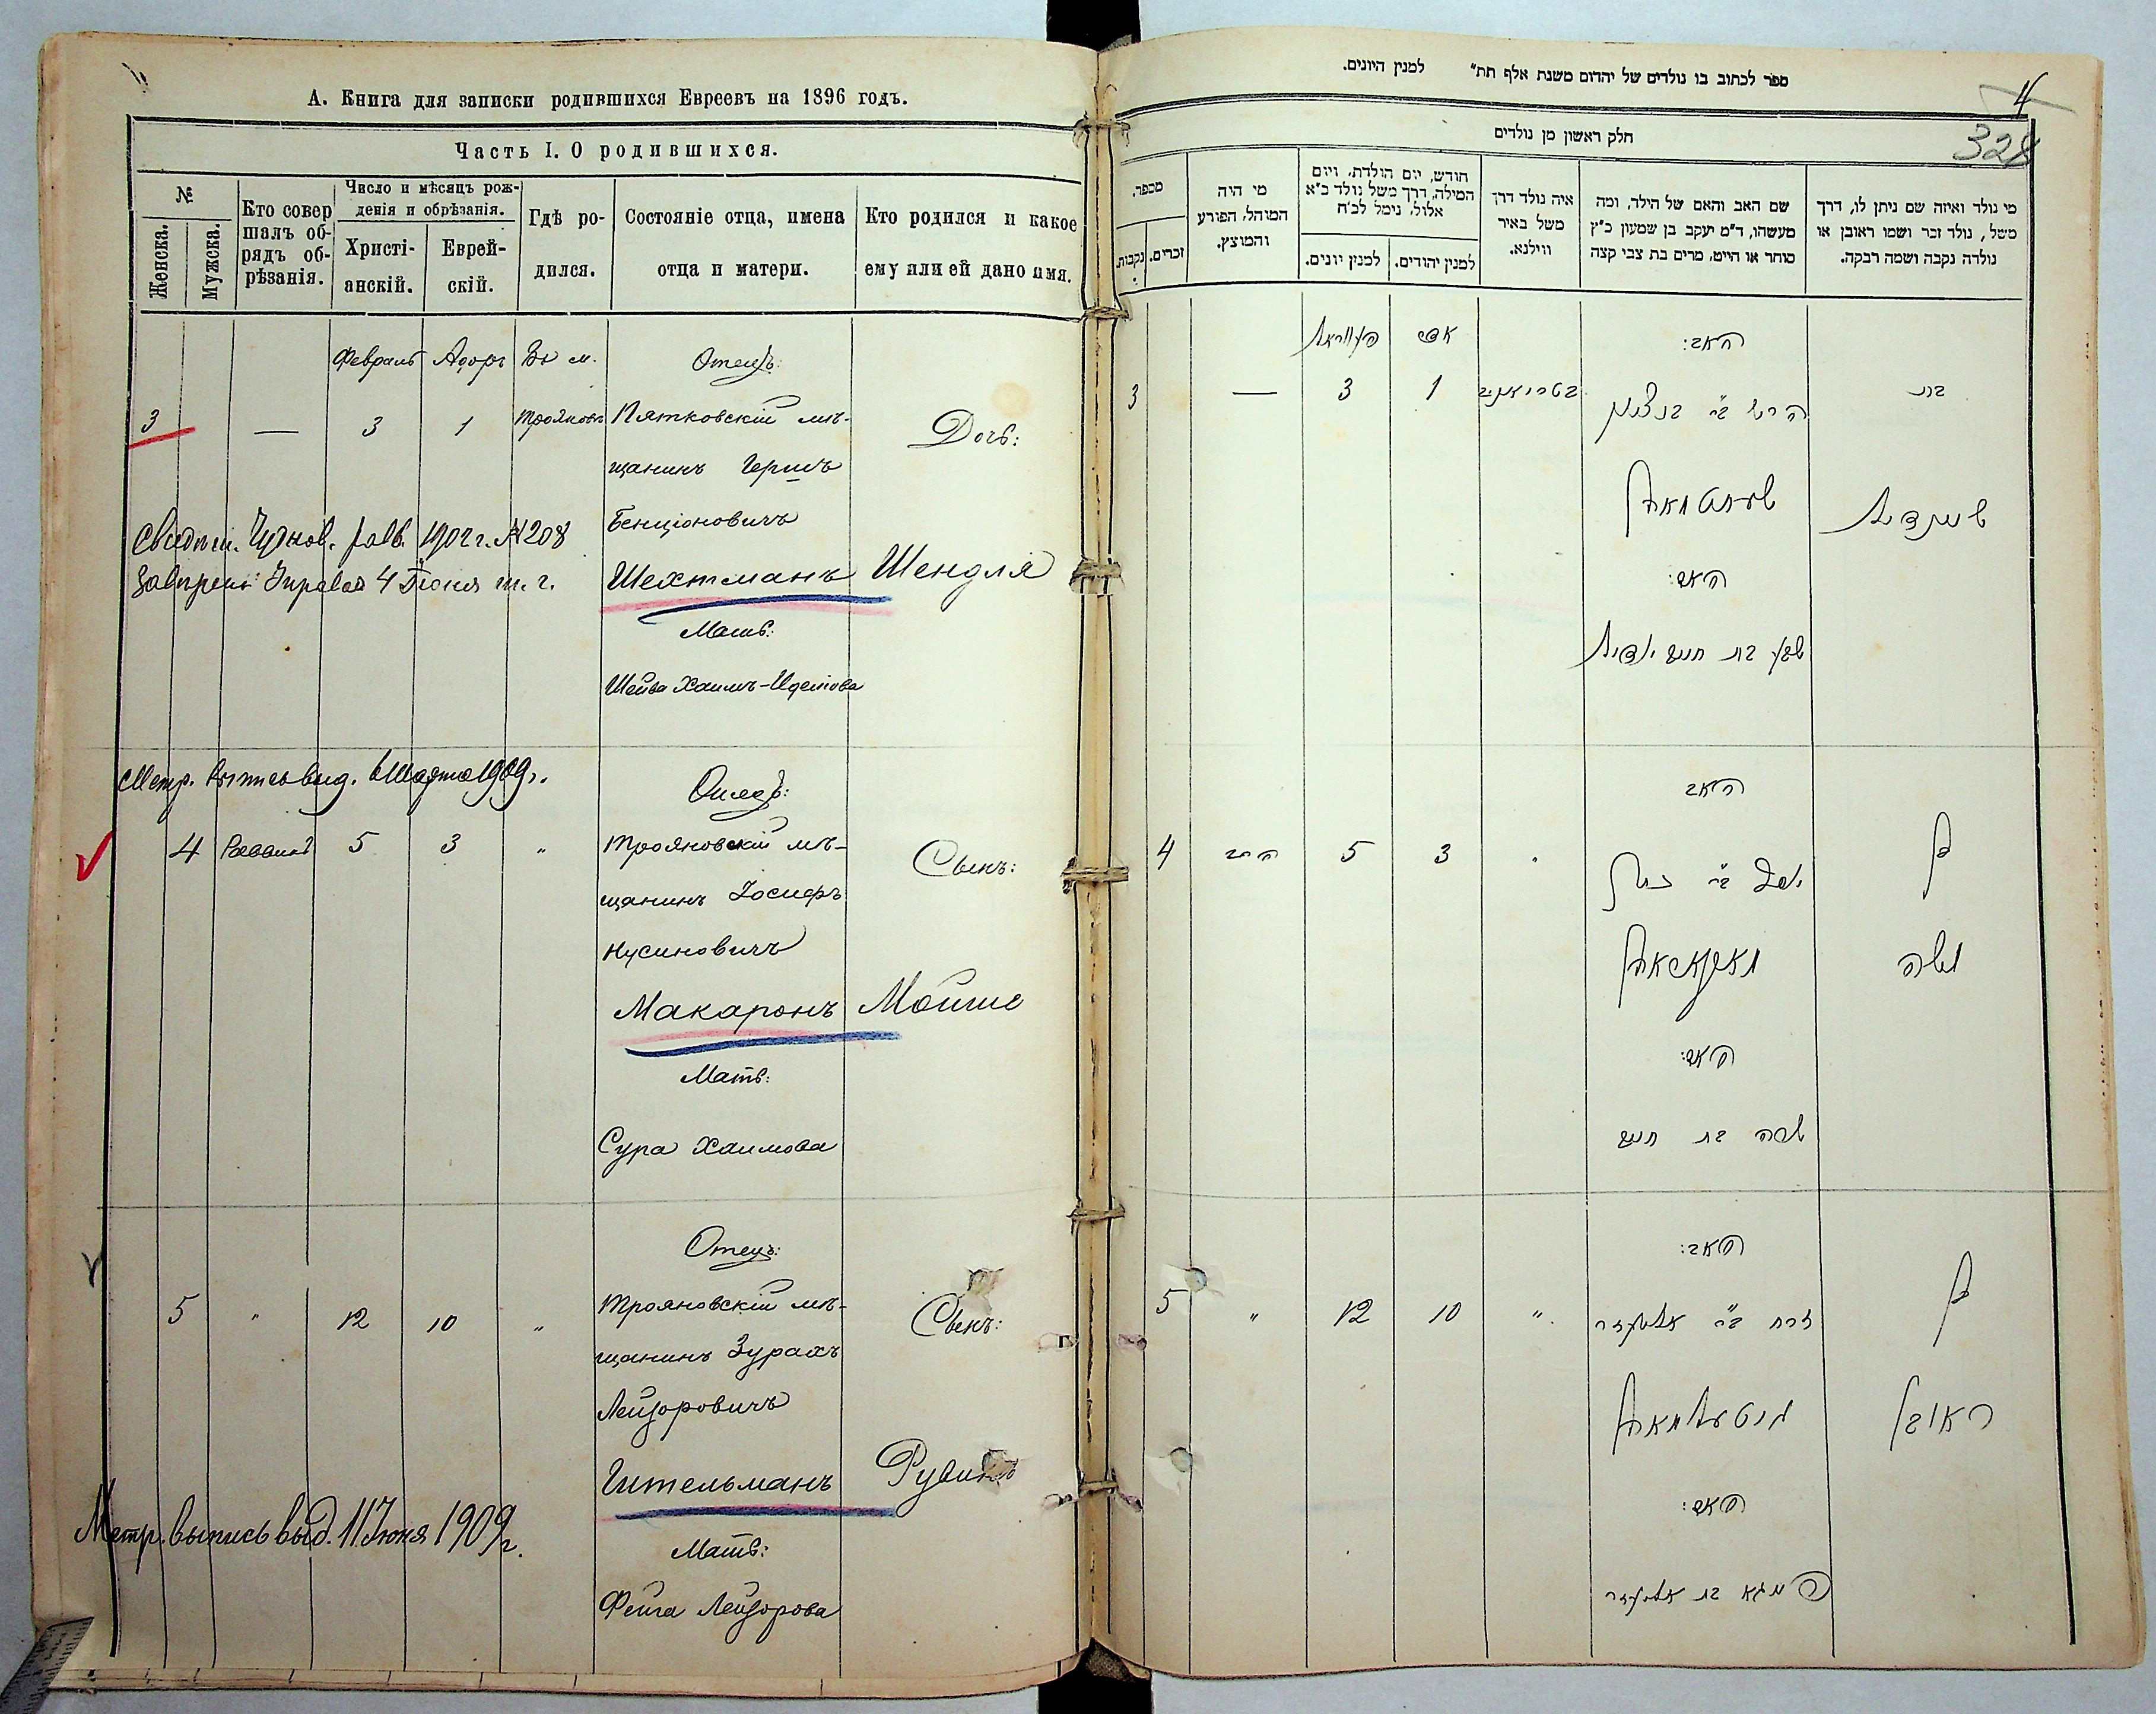 А. Книга для записки родившихся Евреевъ на 1896 годъ.
Часть I. О родившихся.
№
Женска.
Мужска.
Кто совер
шалъ об-
рядъ об-
рѣзанія.
Число и мѣсяцъ рож-
денія и обрѣзанія.
Христі-
анскій.
Еврей-
скій.
Гдѣ ро-
дился.
Состояніе отца, имена
отца и матери.
Кто родился и какое
ему или ей дано имя.
Февраль Адоръ Въ м. Отецъ:
3 — 3 1 Трояновъ Пятковскій мѣ-
щанинъ Гершъ
Дочь:
Бенціоновичъ
1902 г. № 208
Шехтманъ Шендля
4 Іюня т. г.
Мать:
Шейва Хаимъ-Иделіова
Метр. выпись выд. 6 Марта 1909 г.
Отецъ:
4 Раввинъ 5 3 " Трояновскій мѣ-
щанинъ Іосифъ
Сынъ:
Нусиновичъ
Макаронъ Мойше
Мать:
Сура Хаимова
Отецъ:
5 " 12 10 " Трояновскій мѣ-
щанинъ Зурахъ
Сынъ:
Лейзоровичъ
Гительманъ Рувинъ
Метр. выпись выд. 11 Іюня 1909 г.
Мать:
Фейга Лейзорова
ספר לכתוב בו נולדים של יהדום משנת אלף תת״ למנין היונים.
4
328
חלק ראשון מן נולדים
מי נולד ואיזה שם ניתן לו, דרך
משל, נולד זכר ושמו ראובן או
נולדה נקבה ושמה רבקה.
שם האב והאם של הילד, ומה
מעשהו, ד״מ יעקב בן שמעון כ״ץ
סוחר או חייט, מרים בת צבי קצה
איה נולד דרך
משל באיר
ווילנא.
חודש, יום הולדת, ויום
המילה, דרך משל נולד כ״א
אלול, נימל לכ״ח
למנין יהודים.
למנין יונים.
מי היה
המוהל, הפורע
והמוצץ.
מספר.
זכרים.
נקבות.
האב: אדר פעווראל
בת הרש ב״ר בנציון 1 3 — 3
שעכטמאן
שיינדיל
האם:
האב
בן יוסף ב״ר ניסן " 3 5 הרב 4
משה מאקאראן
האם:
שרה בת חיים
האב:
בן זרח ב״ר אליעזר " 10 12 " 5
ראובן גיטעלמאן
האם:
פייגא בת אליעזר